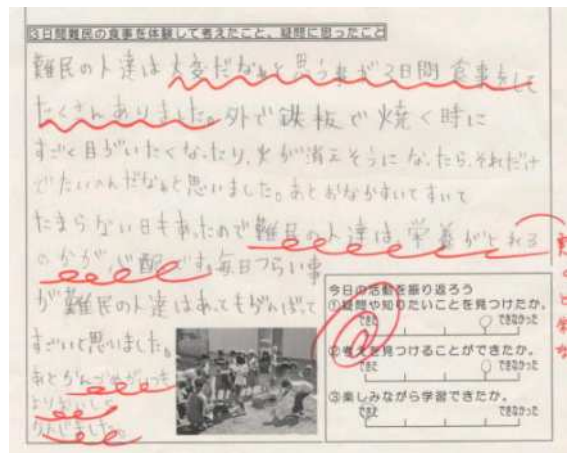 3日間難民の食事を体験して考えたこと、疑問に思ったこと
難民の人達は大変だなぁと思う事が3日間食事をして
たくさんありました。外で鉄板で焼く時に
すごく目がいたくなったり、火が消えそうになったら、それだけ
でたいへんだなぁと思いました。あとおなかすいてすいて
たまらない日もあったので難民の人達は、栄養がとれる
のかが、心配です。毎日つらい事
が難民の人達はあってもがんばって
すごいと思いました。
あとかんづめがいつも
よりおいしく
かんじました。
今日の活動を振り返ろう
①疑問や知りたいことを見つけたか。
できた できなかった
②考えを見つけることができたか。
できた できなかった
③楽しみながら学習できたか。
できた できなかった